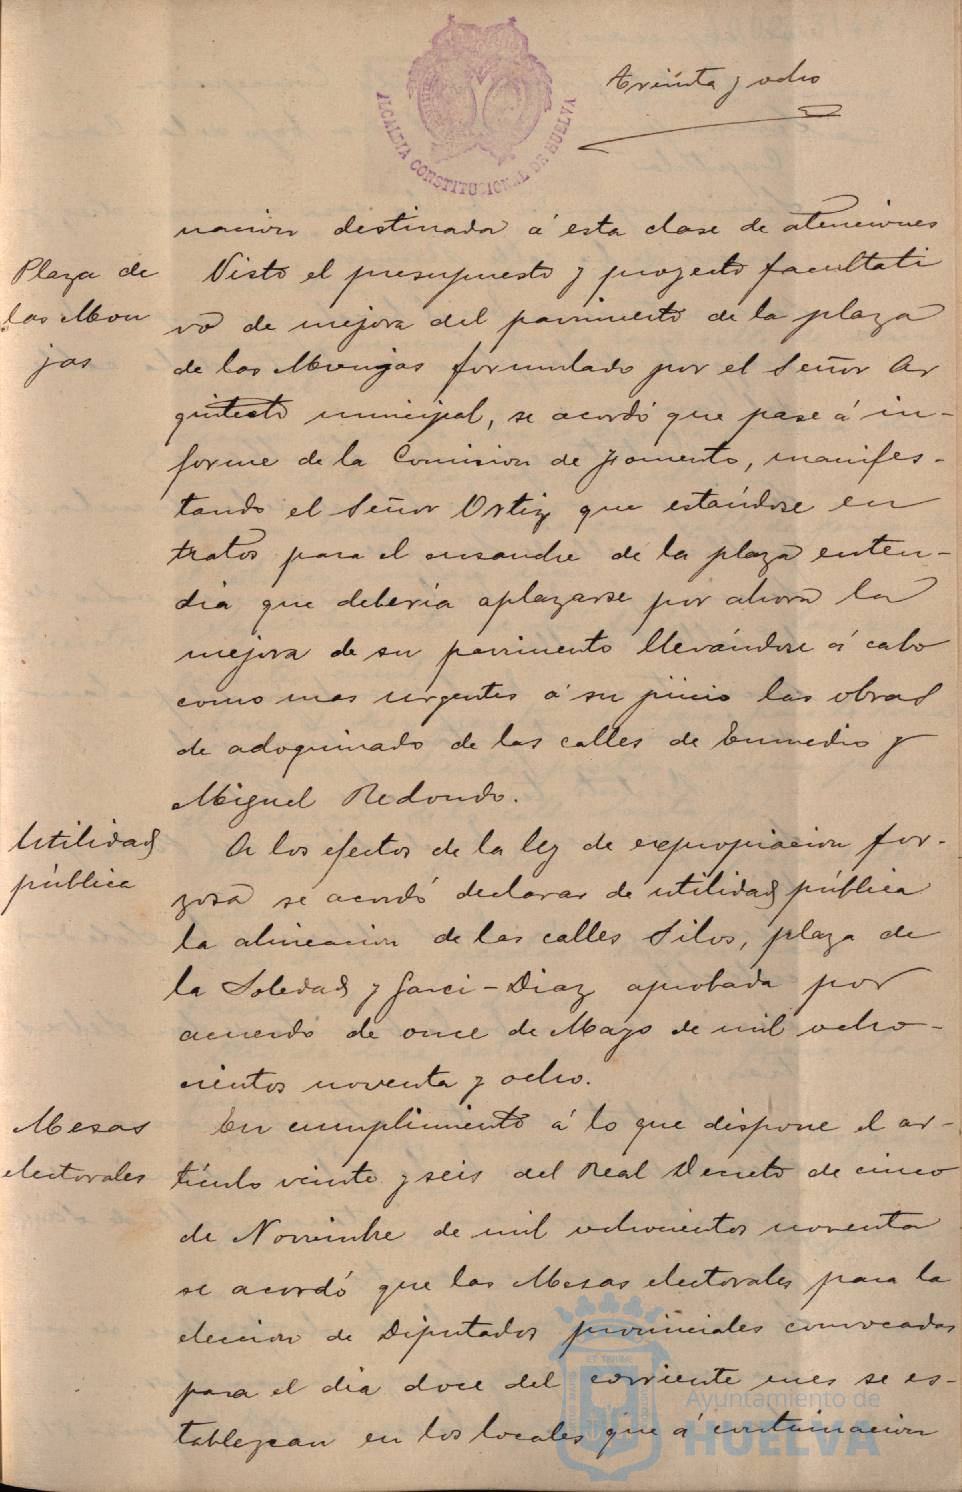 ALCALDIA CONSTITUCIONAL DE HUELVA
Treinta y ocho
nacion destinada á esta clase de atenciones
Plaza de
las Mon
jas
Visto el presupuesto y proyecto facultati
vo de mejora del pavimento de la plaza
de las Monjas formulado por el Señor Ar
quitecto municipal, se acordó que pase á in-
forme de la Comision de Fomento, manifes-
tando el Señor Ortiz que estándose en
tratos para el ensanche de la plaza enten-
dia que deberia aplazarse por ahora la
mejora de su pavimento llevándose á cabo
como mas urgentes á su juicio las obras
de adoquinado de las calles de Enmedio y
Miguel Redondo.
Utilidad
pública
A los efectos de la ley de expropiacion for-
zosa se acordó declarar de utilidad pública
la alineacion de las calles Silos, plaza de
la Soledad y Garci-Diaz aprobada por
acuerdo de once de Mayo de mil ocho-
cientos noventa y ocho.
Mesas
electorales
En cumplimiento á lo que dispone el ar-
tículo veinte y seis del Real Decreto de cinco
de Noviembre de mil ochocientos noventa
se acordó que las Mesas electorales para la
eleccion de Diputados provinciales convocadas
para el dia doce del corriente mes se es-
tablezcan en los locales que á continuacion
Ayuntamiento de
HUELVA